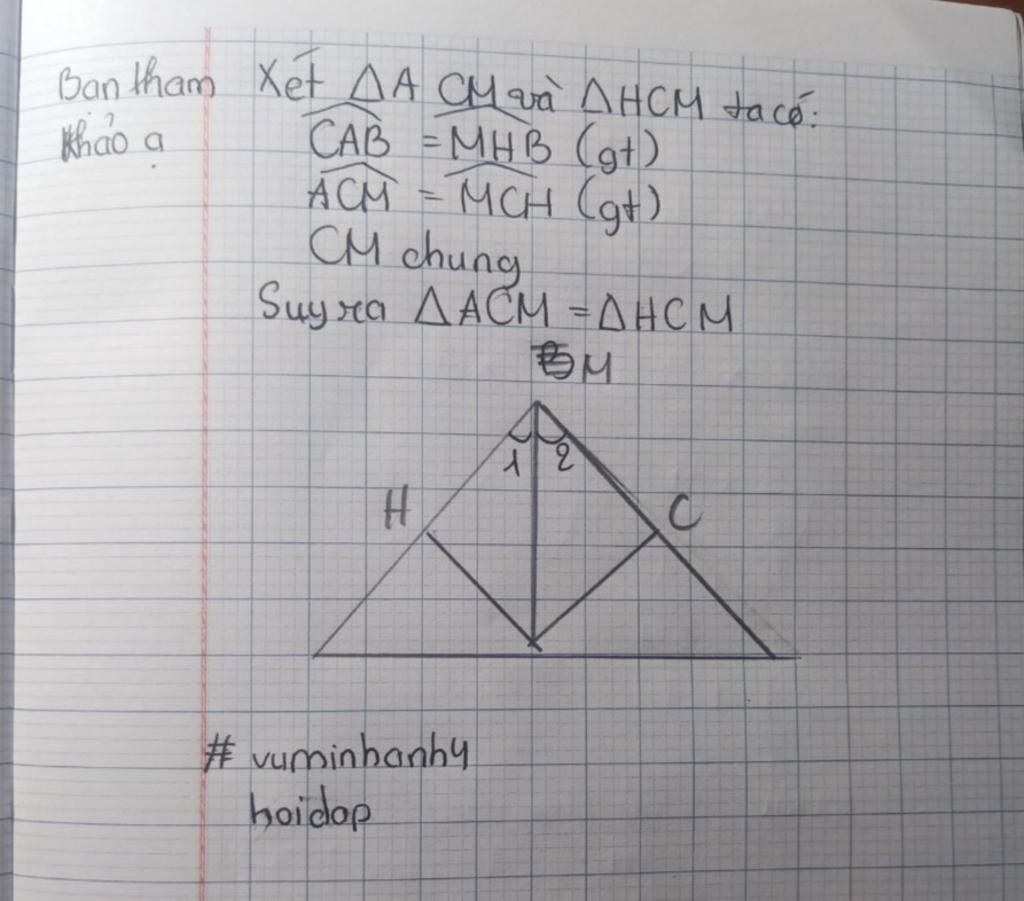 Bạn tham khảo ạ
Xét ΔACM và ΔHCM ta có:
CAB = MHB (gt)
ACM = MCH (gt)
CM chung
Suy ra ΔACM = ΔHCM
M
1 2
H C
# vuminhanhy
hoidap